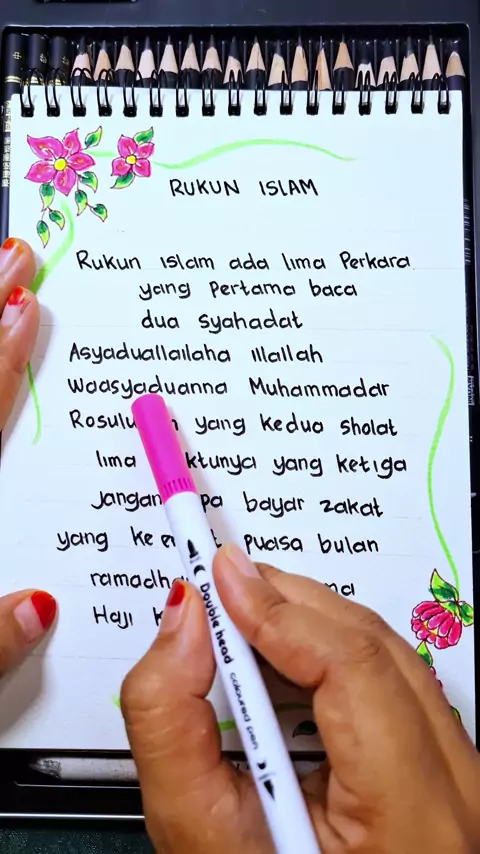 RUKUN ISLAM
Rukun Islam ada lima Perkara
yang Pertama baca
dua syahadat
Asyaduallailaha Illallah
Waasyaduanna Muhammadar
yang kedua sholat
lima yang ketiga
jangan bayar zakat
yang puasa bulan
Haji
Double head coloured pen